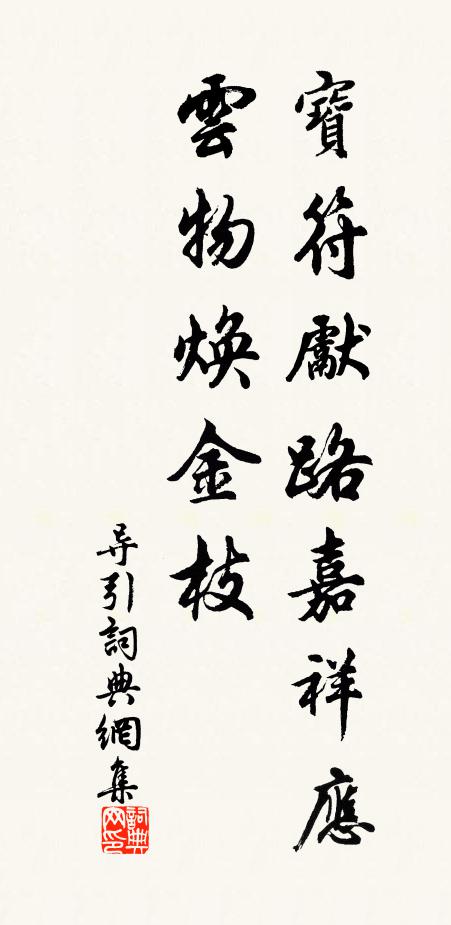 寶符獻路嘉祥應
雲物煥金枝
导引詞典網集
詞典
网印